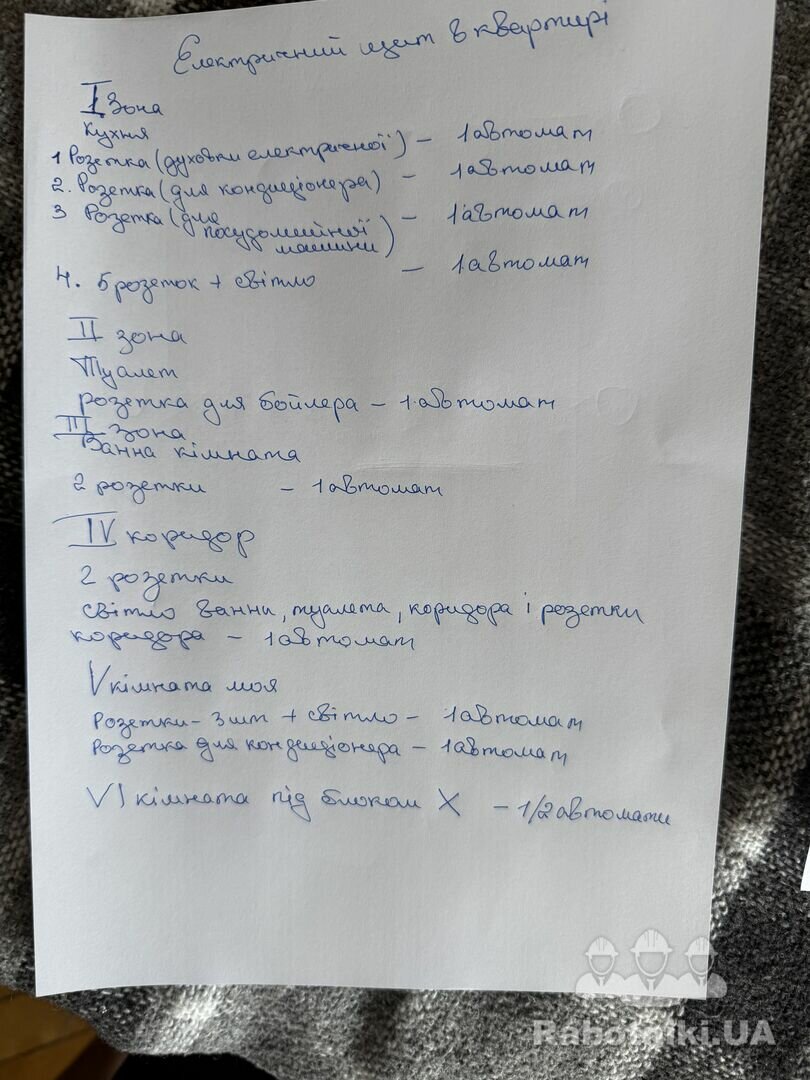 Електричний щит в квартирі
I Зона
Кухня
1 Розетка (духовки електричної) – 1 автомат
2. Розетка (для кондиціонера) – 1 автомат
3 Розетка (для посудомийної машини) – 1 автомат
4. 5 розеток + світло – 1 автомат
II зона
Туалет
розетка для бойлера – 1 автомат
III зона
Ванна кімната
2 розетки – 1 автомат
IV коридор
2 розетки
світло ванни, туалета, коридора і розетки
коридора – 1 автомат
V кімната моя
Розетки – 3 шт + світло – 1 автомат
Розетка для кондиціонера – 1 автомат
VI кімната під блоком X – 1/2 автомати
Rabotniki.UA